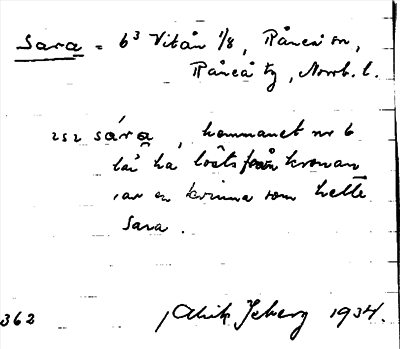 Sara = 6³ Vitån 1/8, Råneå sn,
Råneå tg, Norrb. l.
252 sára, hemmanet nr 6
lär ha lösts från kronan
av en kvinna som hette
Sara.
362 Alrik Isberg 1934.